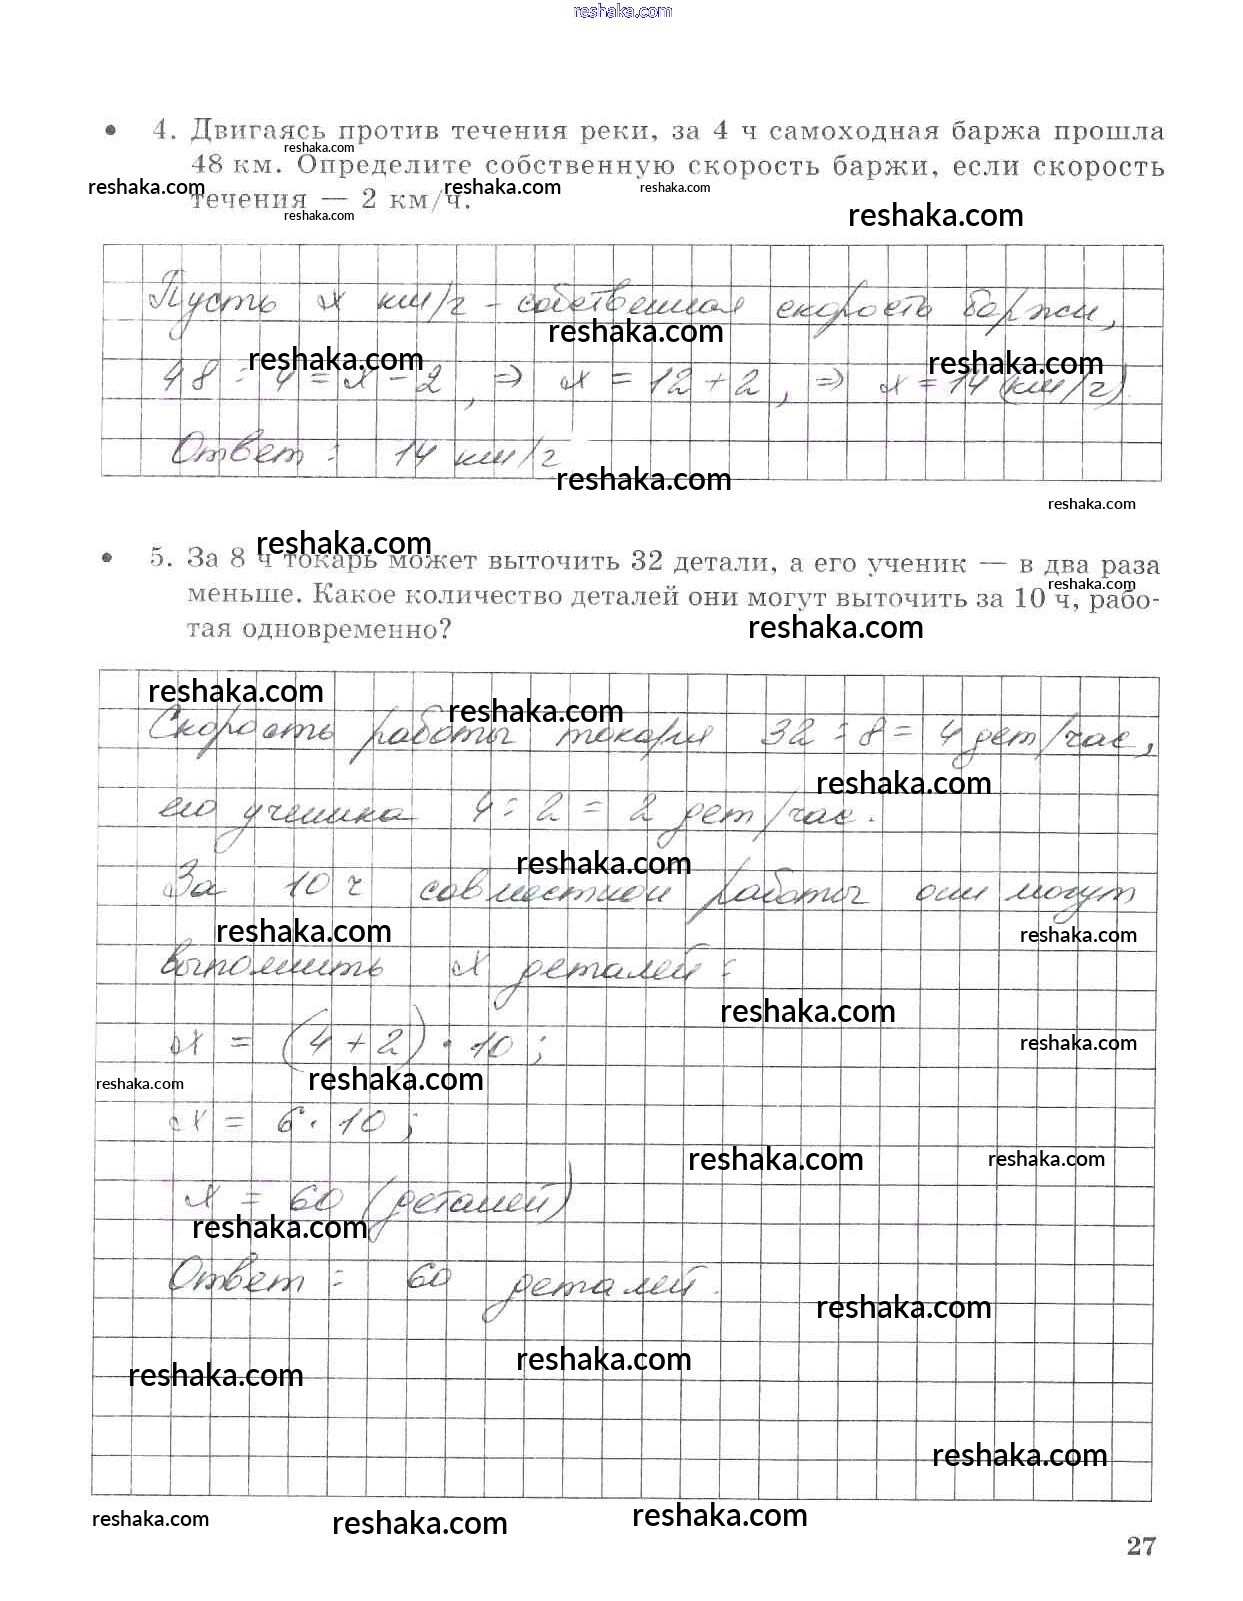 reshaka.com
• 4. Двигаясь против течения реки, за 4 ч самоходная баржа прошла
reshaka.com
48 км. Определите собственную скорость баржи, если скорость
reshaka.com reshaka.com
течения — 2 км/ч.
reshaka.com reshaka.com
Пусть x км/ч - собственная скорость баржи,
reshaka.com
reshaka.com reshaka.com
48 : 4 = x - 2, ⇒ x = 12 + 2, ⇒ x = 14 (км/ч).
Ответ: 14 км/ч
reshaka.com
reshaka.com
reshaka.com
• 5. За 8 ч токарь может выточить 32 детали, а его ученик — в два раза
reshaka.com
меньше. Какое количество деталей они могут выточить за 10 ч, рабо-
тая одновременно?
reshaka.com
reshaka.com
reshaka.com
Скорость работы токаря 32 : 8 = 4 дет/час,
reshaka.com
его ученика 4 : 2 = 2 дет/час.
reshaka.com
За 10 ч совместной работы они могут
reshaka.com reshaka.com
выполнить x деталей:
reshaka.com
x = (4 + 2) · 10;
reshaka.com
reshaka.com reshaka.com
x = 6 · 10;
reshaka.com reshaka.com
x = 60 (деталей)
reshaka.com
Ответ: 60 деталей.
reshaka.com
reshaka.com
reshaka.com
reshaka.com
reshaka.com reshaka.com reshaka.com
27